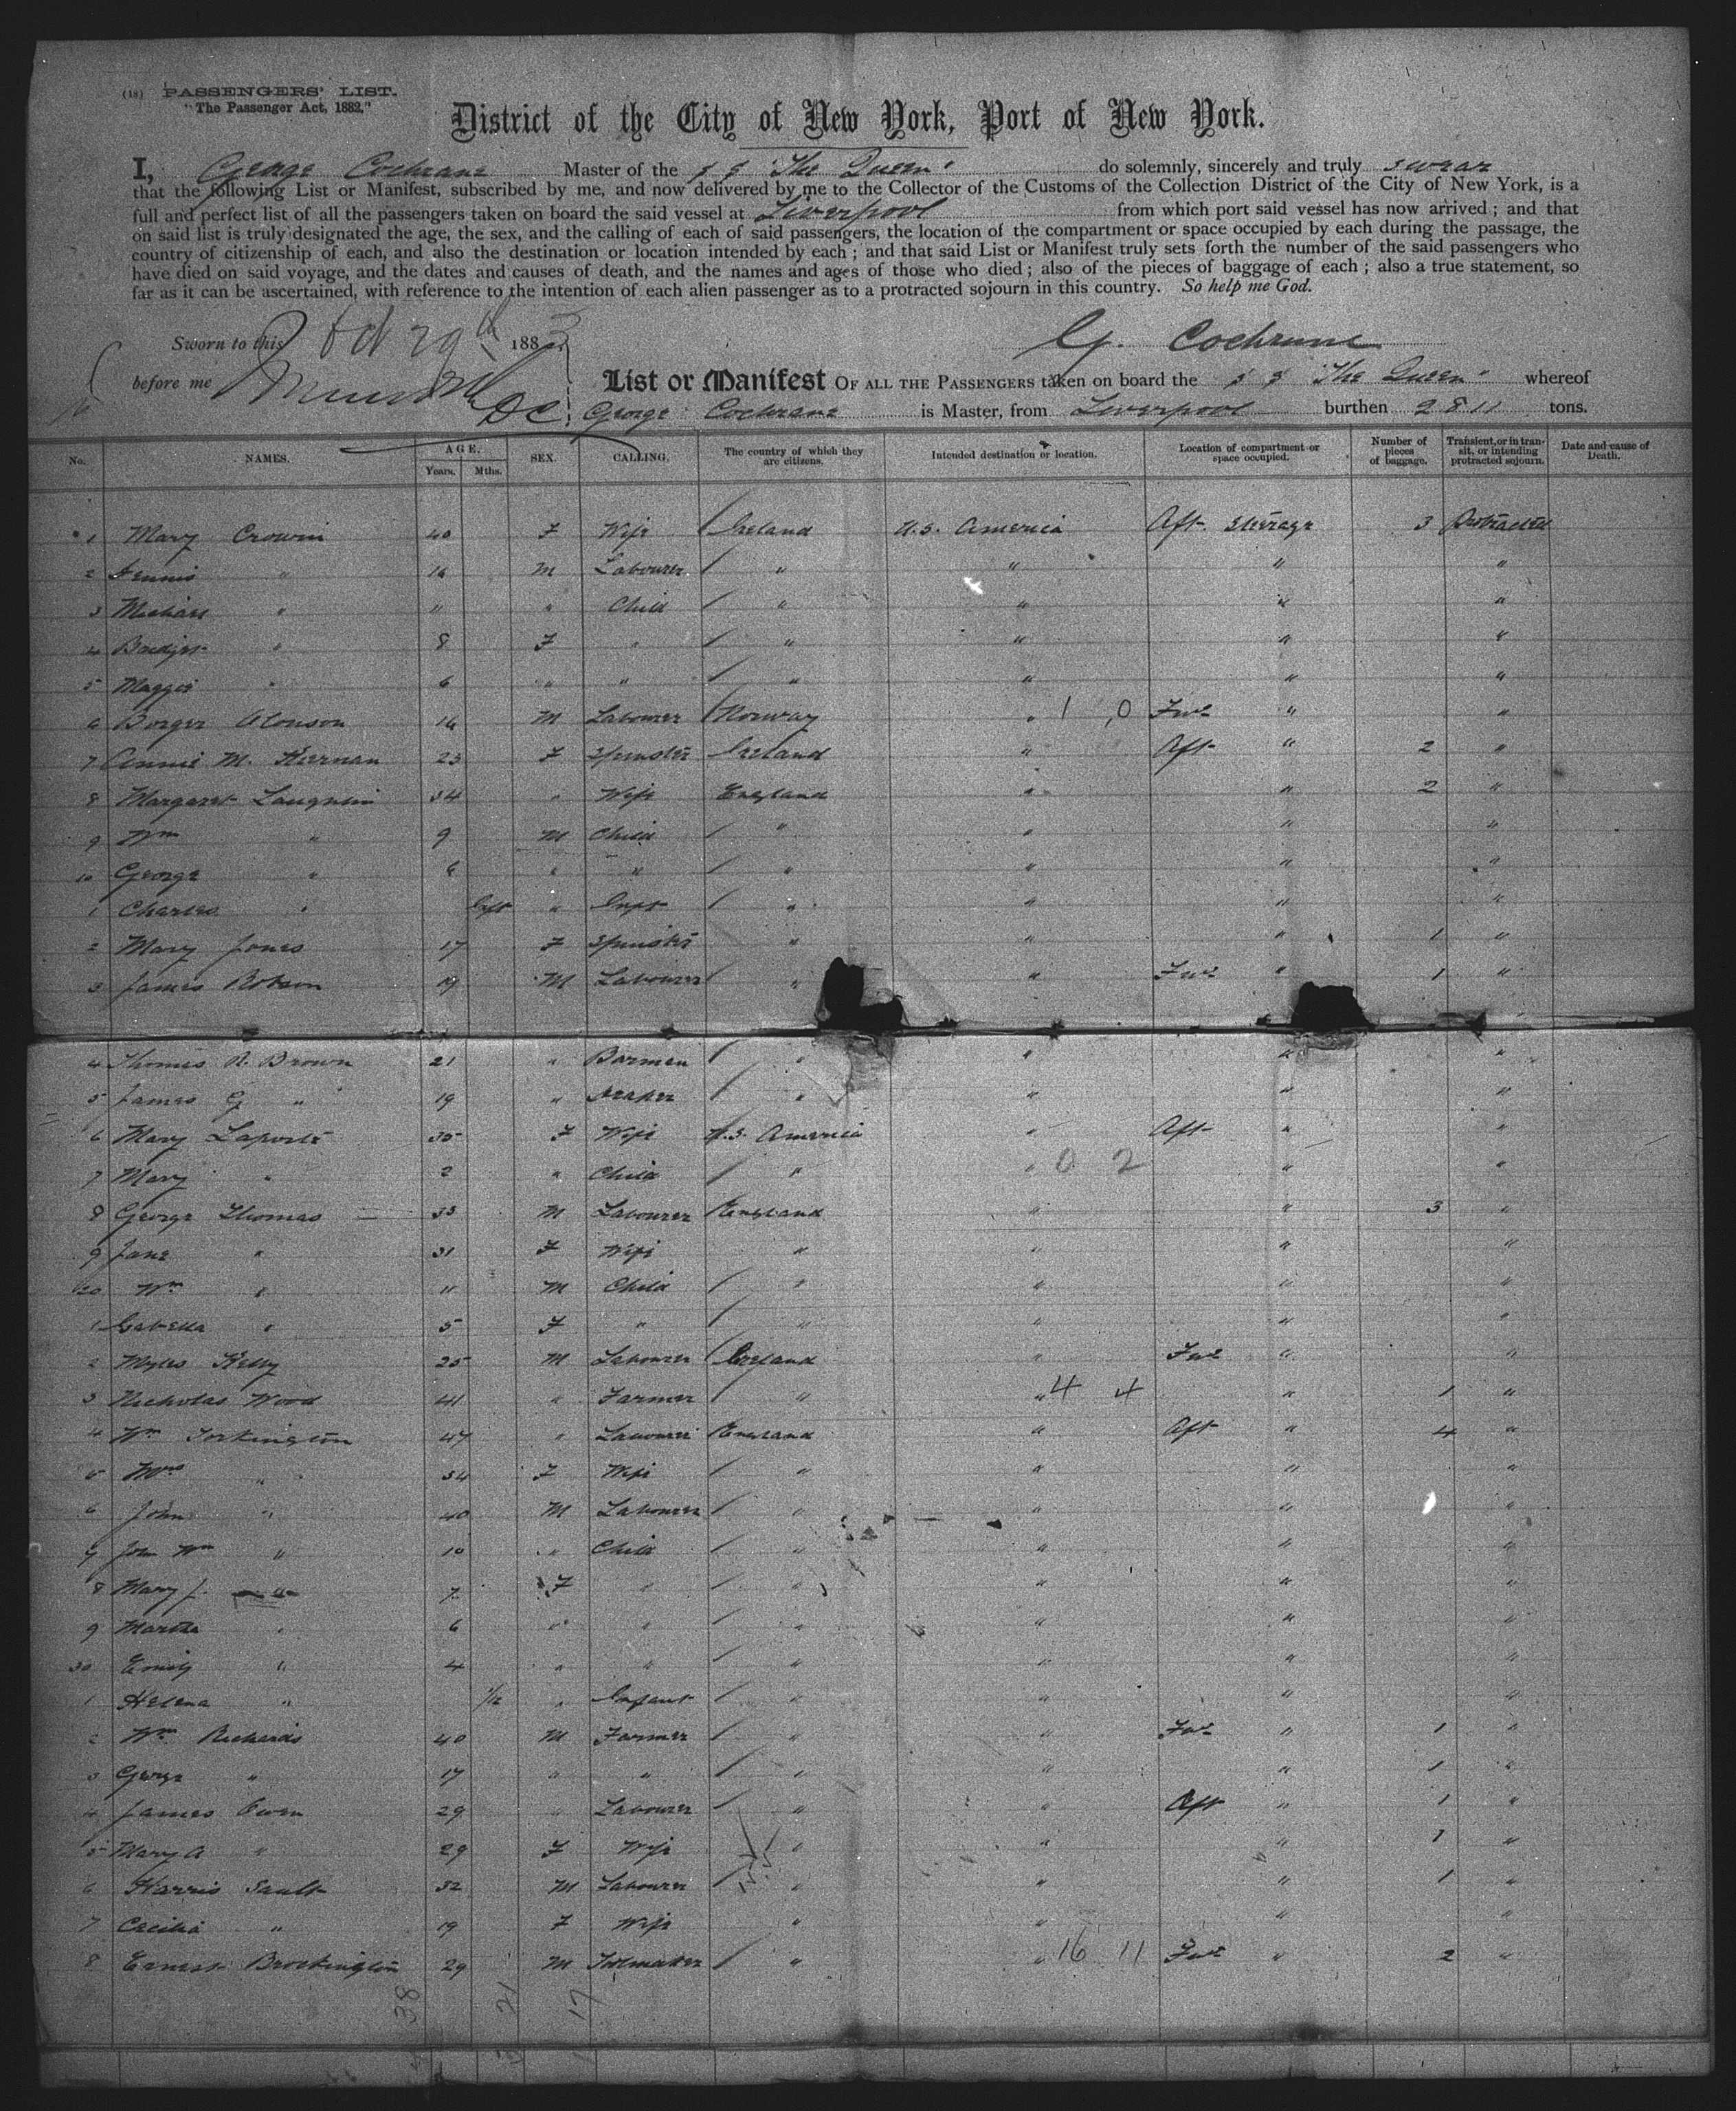 (18) PASSENGERS' LIST.
"The Passenger Act, 1882."
District of the City of New York, Port of New York.
I, George Cochrane Master of the s s "The Queen" do solemnly, sincerely and truly swear
that the following List or Manifest, subscribed by me, and now delivered by me to the Collector of the Customs of the Collection District of the City of New York, is a
full and perfect list of all the passengers taken on board the said vessel at Liverpool from which port said vessel has now arrived; and that
on said list is truly designated the age, the sex, and the calling of each of said passengers, the location of the compartment or space occupied by each during the passage, the
country of citizenship of each, and also the destination or location intended by each; and that said List or Manifest truly sets forth the number of the said passengers who
have died on said voyage, and the dates and causes of death, and the names and ages of those who died; also of the pieces of baggage of each; also a true statement, so
far as it can be ascertained, with reference to the intention of each alien passenger as to a protracted sojourn in this country. So help me God.
Sworn to this Oct 29th 1883 G. Cochrane
before me DC. List or Manifest OF ALL THE PASSENGERS taken on board the s s "The Queen" whereof
George Cochrane is Master, from Liverpool burthen 2811 tons.
No. NAMES. AGE. Years. Mths. SEX. CALLING. The country of which they are citizens. Intended destination or location. Location of compartment or space occupied. Number of pieces of baggage. Transient, or in transit, or intending protracted sojourn. Date and cause of Death.
1 Mary Crowin 40 F Wife Ireland U.S. America Aft Steerage 3 Protracted
2 Dennis " 16 M Labourer " " " "
3 Michael " 11 " Child " " " "
4 Bridget " 8 F " " " " "
5 Maggie " 6 " " " " " "
6 Borger Olonson 16 M Labourer Norway " 1 0 Fwd " "
7 Annie M. Kiernan 23 F Spinster Ireland " Aft " 2 "
8 Margaret Laughlin 34 " Wife England " " 2 "
9 Wm " 9 M Child " " " "
10 George " 6 " " " " " "
1 Charles " Inft " Inft " " " "
2 Mary Jones 17 F Spinster " " " 1 "
3 James Robson 19 M Labourer " " Fwd " 1 "
4 Thomas R. Brown 21 " Barman " " " "
5 James G " 19 " Draper " " " "
6 Mary Laporte 35 F Wife U.S. America " Aft " "
7 Mary " 2 " Child " " 0 2 " "
8 George Thomas 33 M Labourer England " " 3 "
9 Jane " 31 F Wife " " " "
20 Wm " 11 M Child " " " "
1 Isabella " 5 F " " " " "
2 Myles Kelly 25 M Labourer Ireland " Fwd " "
3 Nicholas Wood 41 " Farmer " " 4 4 " 1 "
4 Wm Torkington 47 " Labourer England " Aft " 4 "
5 Mrs " 34 F Wife " " " "
6 John " 40 M Labourer " " " "
7 John Wm " 10 " Child " " " "
8 Mary J. " 7 F " " " " "
9 Martha " 6 " " " " " "
30 Emily " 4 " " " " " "
1 Helena " 1/12 " Infant " " " "
2 Wm Richards 40 M Farmer " " Fwd " 1 "
3 George " 17 " " " " " 1 "
4 James Owen 29 " Labourer " " Aft " 1 "
5 Mary A " 29 F Wife " " " 1 "
6 Harris Sault 32 M Labourer " " " 1 "
7 Cecilia " 19 F Wife " " " "
8 Ernest Brockington 29 M Toolmaker " " 16 11 Fwd " 2 "
38 21 17